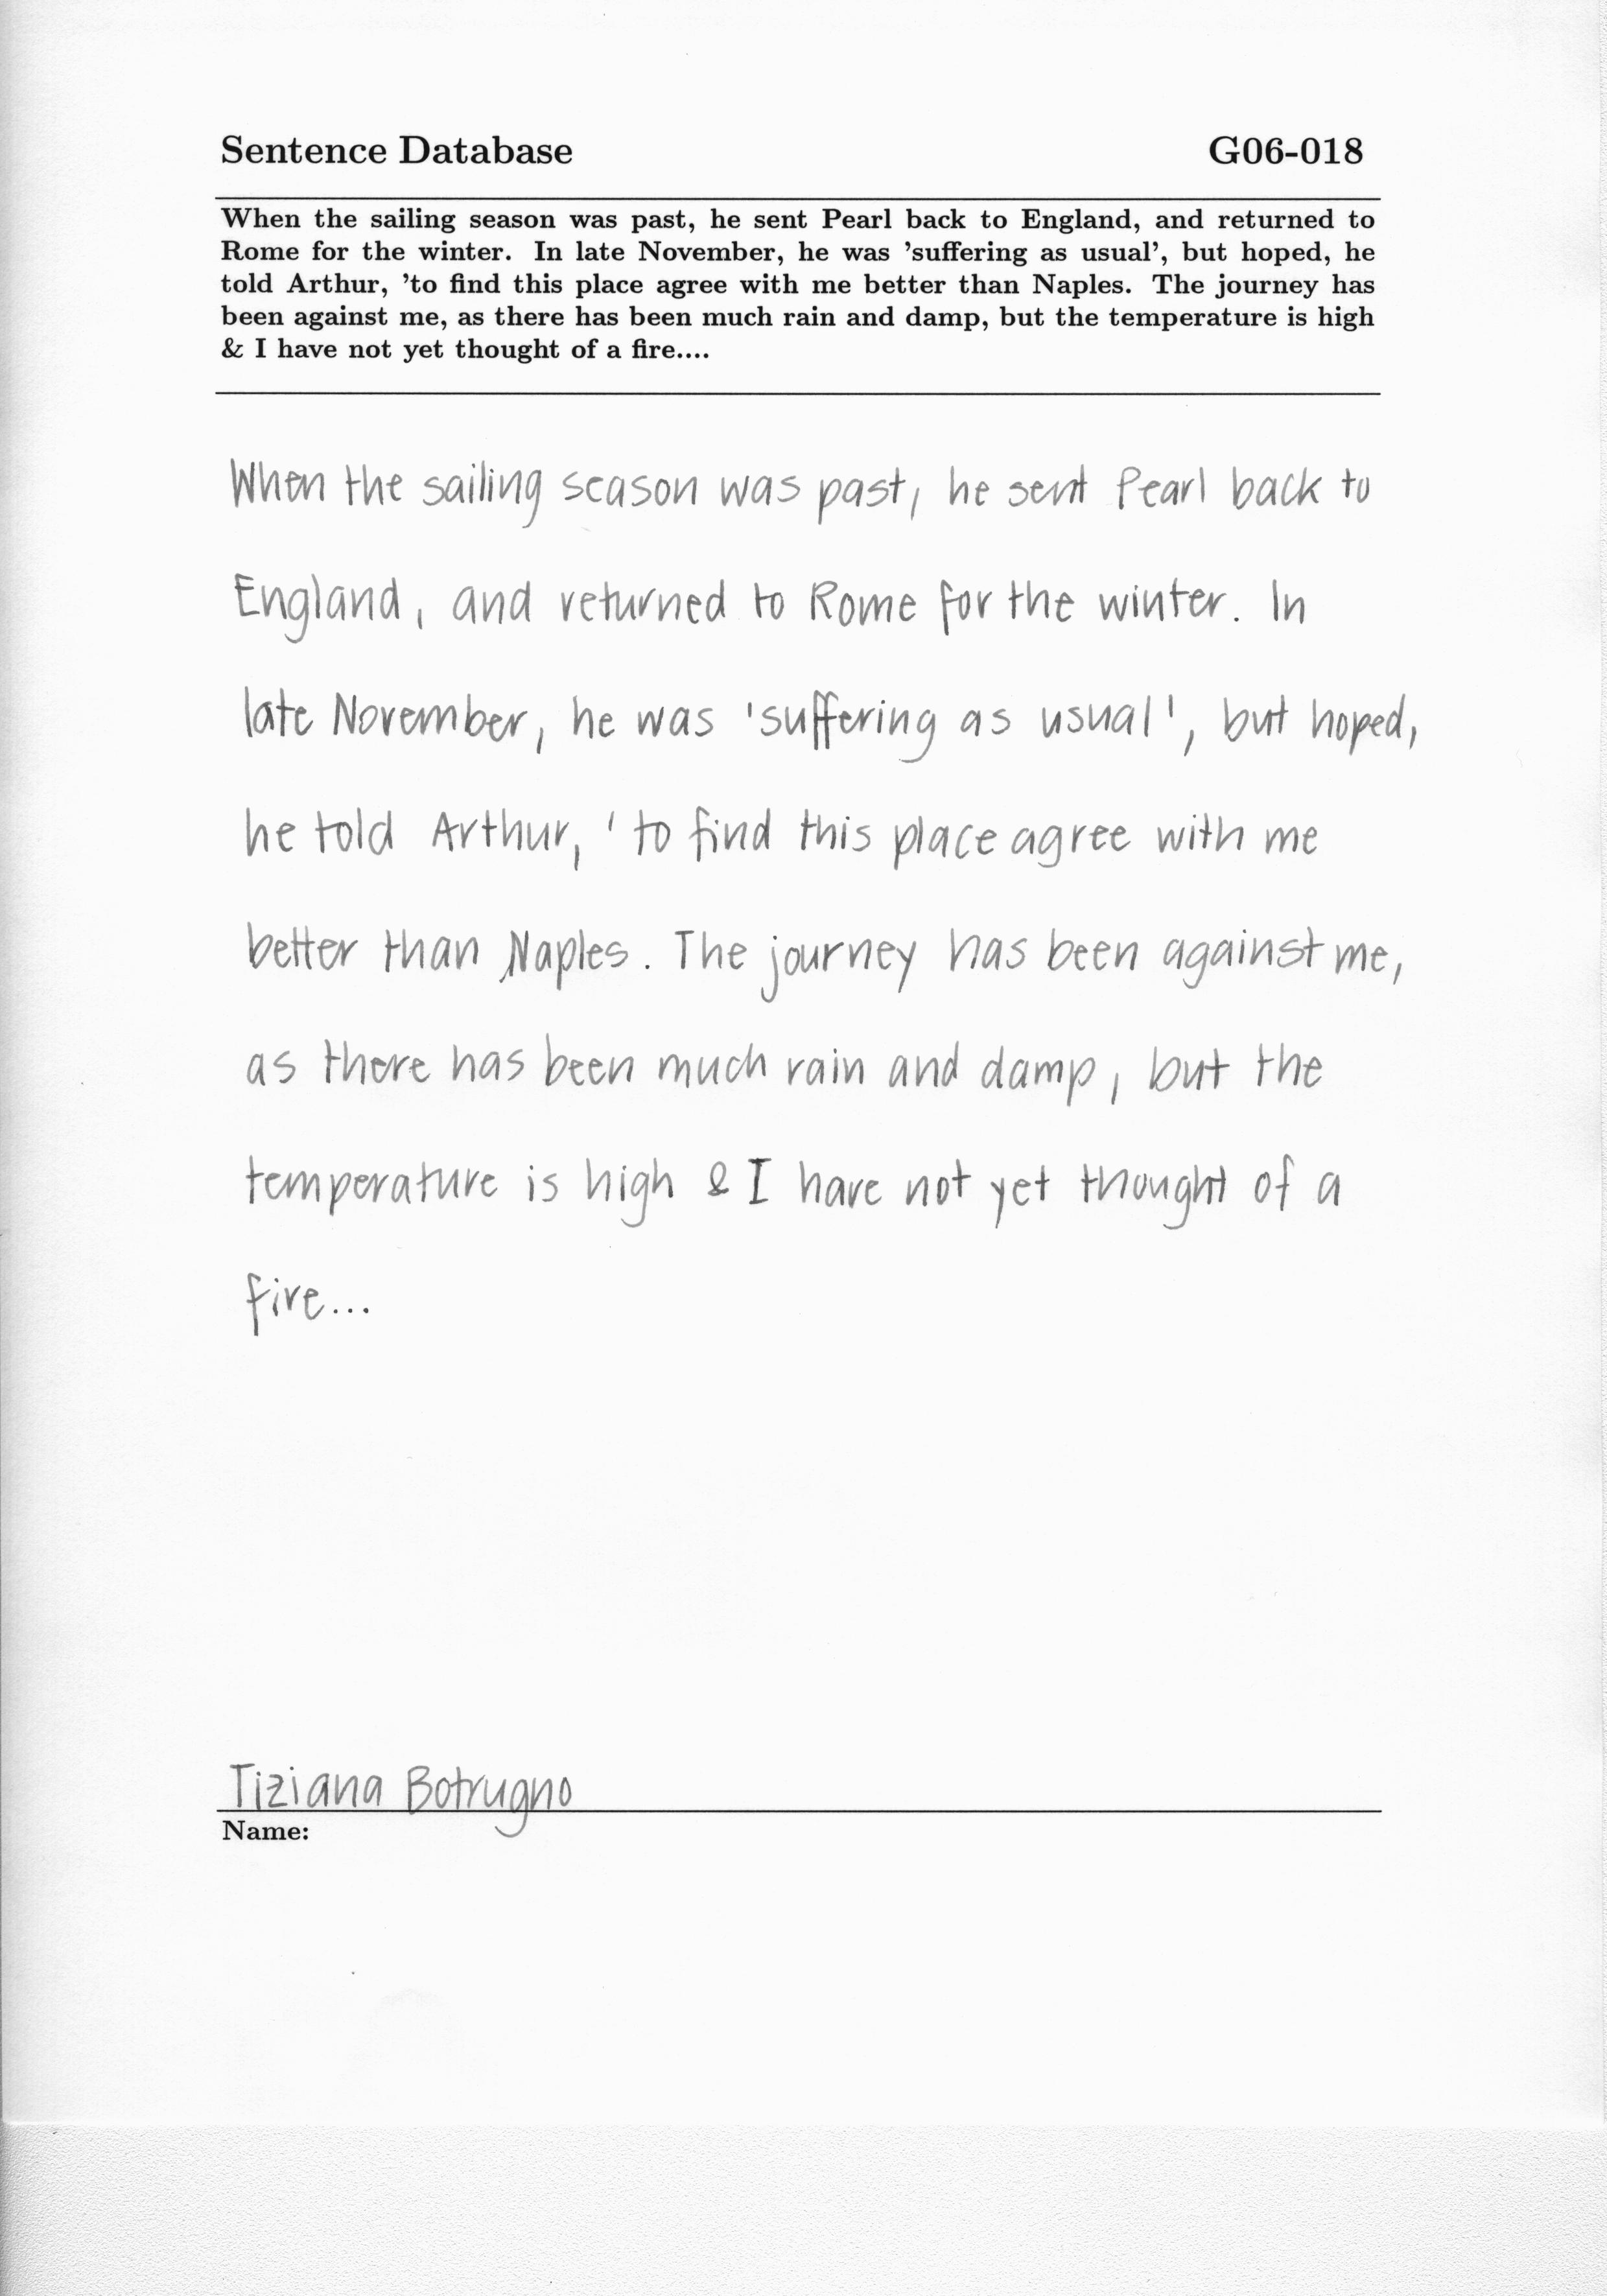 Sentence Database G06-018
When the sailing season was past, he sent Pearl back to England, and returned to
Rome for the winter. In late November, he was 'suffering as usual', but hoped, he
told Arthur, 'to find this place agree with me better than Naples. The journey has
been against me, as there has been much rain and damp, but the temperature is high
& I have not yet thought of a fire....
When the sailing season was past, he sent Pearl back to
England, and returned to Rome for the winter. In
late November, he was 'suffering as usual', but hoped,
he told Arthur, 'to find this place agree with me
better than Naples. The journey has been against me,
as there has been much rain and damp, but the
temperature is high & I have not yet thought of a
fire...
Tiziana Botrugno
Name: